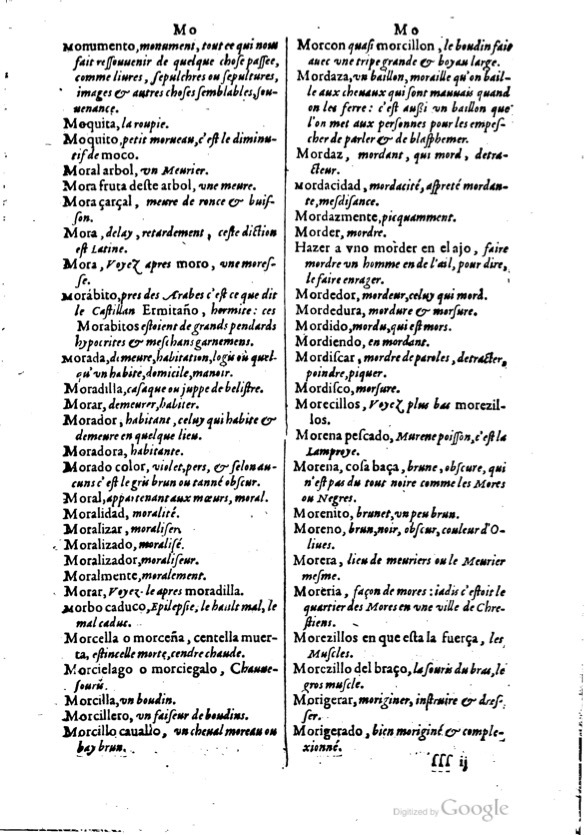 Mo
Monumento, monument, tout ce qui nous
fait reſſouuenir de quelque choſe paſſee,
comme liures, ſepulchres ou ſepultures,
images & autres choſes ſemblables, ſou-
uenance.
Moquita, la roupie.
Moquito, petit morueau, c'eſt le diminu-
tif de moco.
Moral arbol, vn Meurier.
Mora fruta deſte arbol, vne meure.
Mora çarçal, meure de ronce & buiſ-
ſon.
Mora, delay, retardement, ceſte diction
eſt Latine.
Mora, Voyez apres moro, vne moreſ-
ſe.
Morábito, pres des Arabes c'eſt ce que dit
le Caſtillan Ermitaño, hermite: ces
Morabitos eſtoient de grands pendards
hypocrites & meſchans garnemens.
Morada, demeure, habitation, logis où quel-
qu'vn habite, domicile, manoir.
Moradilla, caſaque ou juppe de beliſtre.
Morar, demeurer, habiter.
Morador, habitant, celuy qui habite &
demeure en quelque lieu.
Moradora, habitante.
Morado color, violet, pers, & ſelon au-
cuns c'eſt le gris brun ou tanné obſcur.
Moral, appartenant aux mœurs, moral.
Moralidad, moralité.
Moralizar, moraliſer.
Moralizado, moraliſé.
Moralizador, moraliſeur.
Moralmente, moralement.
Morar, Voyez le apres moradilla.
Morbo caduco, Epilepſie, le hault mal, le
mal caduc.
Morcella o morceña, centella muer-
ta, eſtincelle morte, cendre chaude.
Morcielago o morciegalo, Chauue-
ſouris.
Morcilla, vn boudin.
Morcillero, vn faiſeur de boudins.
Morcillo cauallo, vn cheual moreau ou
bay brun.
Mo
Morcon quaſi morcillon, le boudin fait
auec vne tripe grande & boyau large.
Mordaza, vn baillon, moraille qu'on bail-
le aux cheuaux qui ſont mauuais quand
on les ferre: c'eſt auſſi vn baillon que
l'on met aux perſonnes pour les empeſ-
cher de parler & de blaſphemer.
Mordaz, mordant, qui mord, detra-
cteur.
Mordacidad, mordacité, aſpreté mordan-
te, meſdiſance.
Mordazmente, picquamment.
Morder, mordre.
Hazer a vno morder en el ajo, faire
mordre vn homme en de l'ail, pour dire,
le faire enrager.
Mordedor, mordeur, celuy qui mord.
Mordedura, mordure & morſure.
Mordido, mordu, qui eſt mors.
Mordiendo, en mordant.
Mordiſcar, mordre de paroles, detracter,
poindre, piquer.
Mordiſco, morſure.
Morecillos, Voyez plus bas morezil-
los.
Morena peſcado, Murene poiſſon, c'eſt la
Lamproye.
Morena, coſa baça, brune, obſcure, qui
n'eſt pas du tout noire comme les Mores
ou Negres.
Morenito, brunet, vn peu brun.
Moreno, brun, noir, obſcur, couleur d'O-
liues.
Morera, lieu de meuriers ou le Meurier
meſme.
Moreria, façon de mores: iadis c'eſtoit le
quartier des Mores en vne ville de Chre-
ſtiens.
Morezillos en que eſta la fuerça, les
Muſcles.
Morezillo del braço, la ſouris du bras, le
gros muſcle.
Morigerar, moriginer, inſtruire & dreſ-
ſer.
Morigerado, bien moriginé & comple-
xionné.
ſſſ ij
Digitized by Google